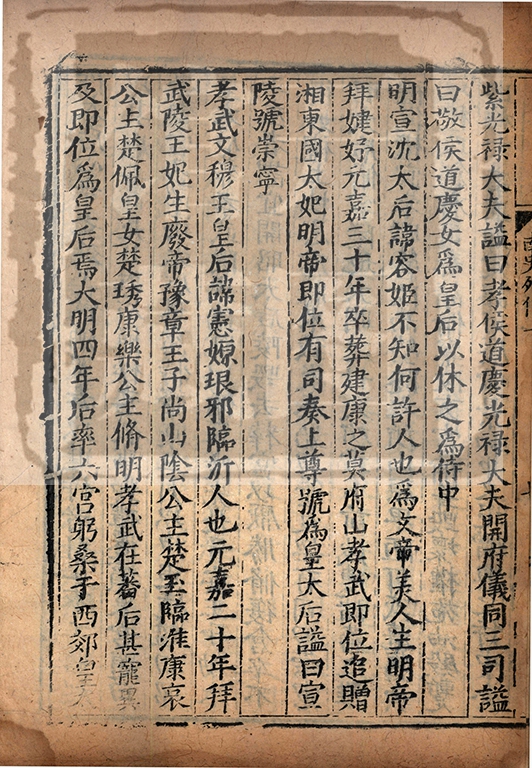 紫光禄大夫謚曰孝侯道慶光禄大夫開府儀同三司謚
曰敬侯道慶女爲皇后以休之爲侍中
明宣沈太后諱容姬不知何許人也爲文帝美人生明帝
拜婕妤元嘉三十年卒葬建康之莫府山孝武即位追贈
湘東國太妃明帝即位有司奏上尊號爲皇太后謚曰宣
陵號崇寧
孝武文穆王皇后諱憲嫄琅邪臨沂人也元嘉二十年拜
武陵王妃生廢帝豫章王子尚山陰公主楚玉臨淮康哀
公主楚佩皇女楚琇康樂公主脩明孝武在蕃后甚寵異
及即位爲皇后焉大明四年后率六宮躬桑于西郊皇太